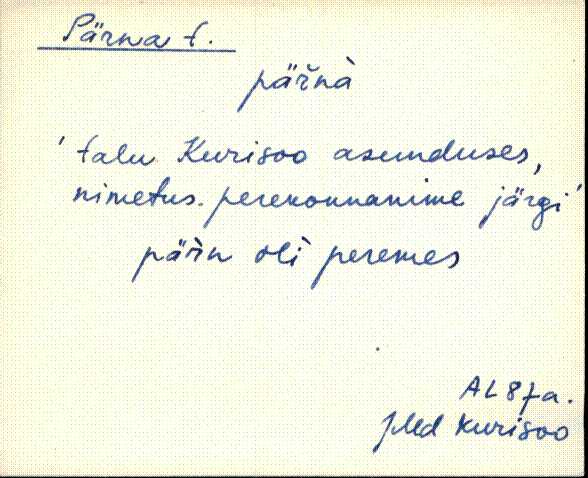 Pärna t.
pär̆nà
' talu Kurisoo asunduses,
nimetus. perekonnanime järgi'
pär̀n oli peremes
AL 87a.
JMd Kurisoo